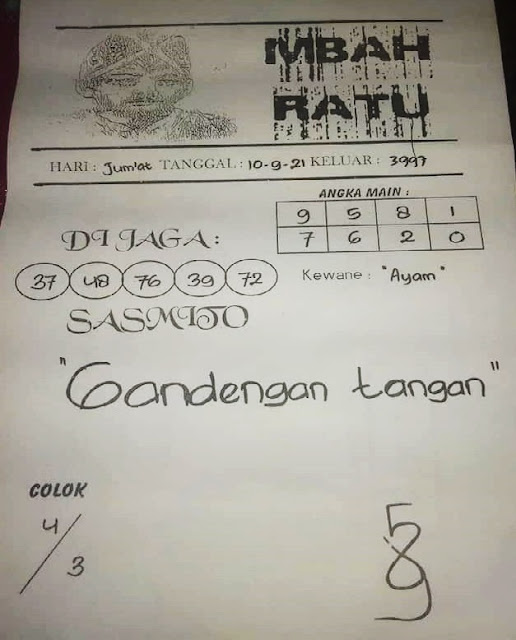 MBAH
RATU
HARI : Jum'at TANGGAL : 10-9-21 KELUAR : 3997
ANGKA MAIN :
9 5 8 1
7 6 2 0
DI JAGA :
37 48 76 39 72
Kewane : "Ayam"
SASMITO
"Gandengan tangan"
COLOK
4/3
5
8
9